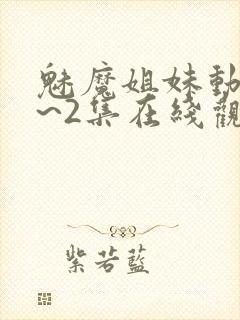 魅魔姐妹動
~2集在线觀
紫若藍